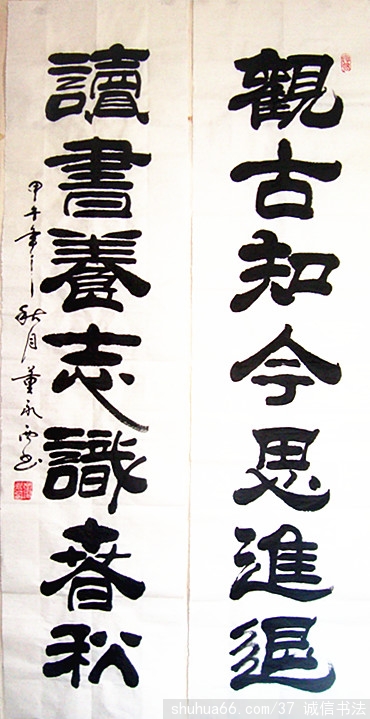 觀古知今思進退
讀書養志識春秋
甲午年之秋月董永西书
shuhua66.com/37 诚信书法